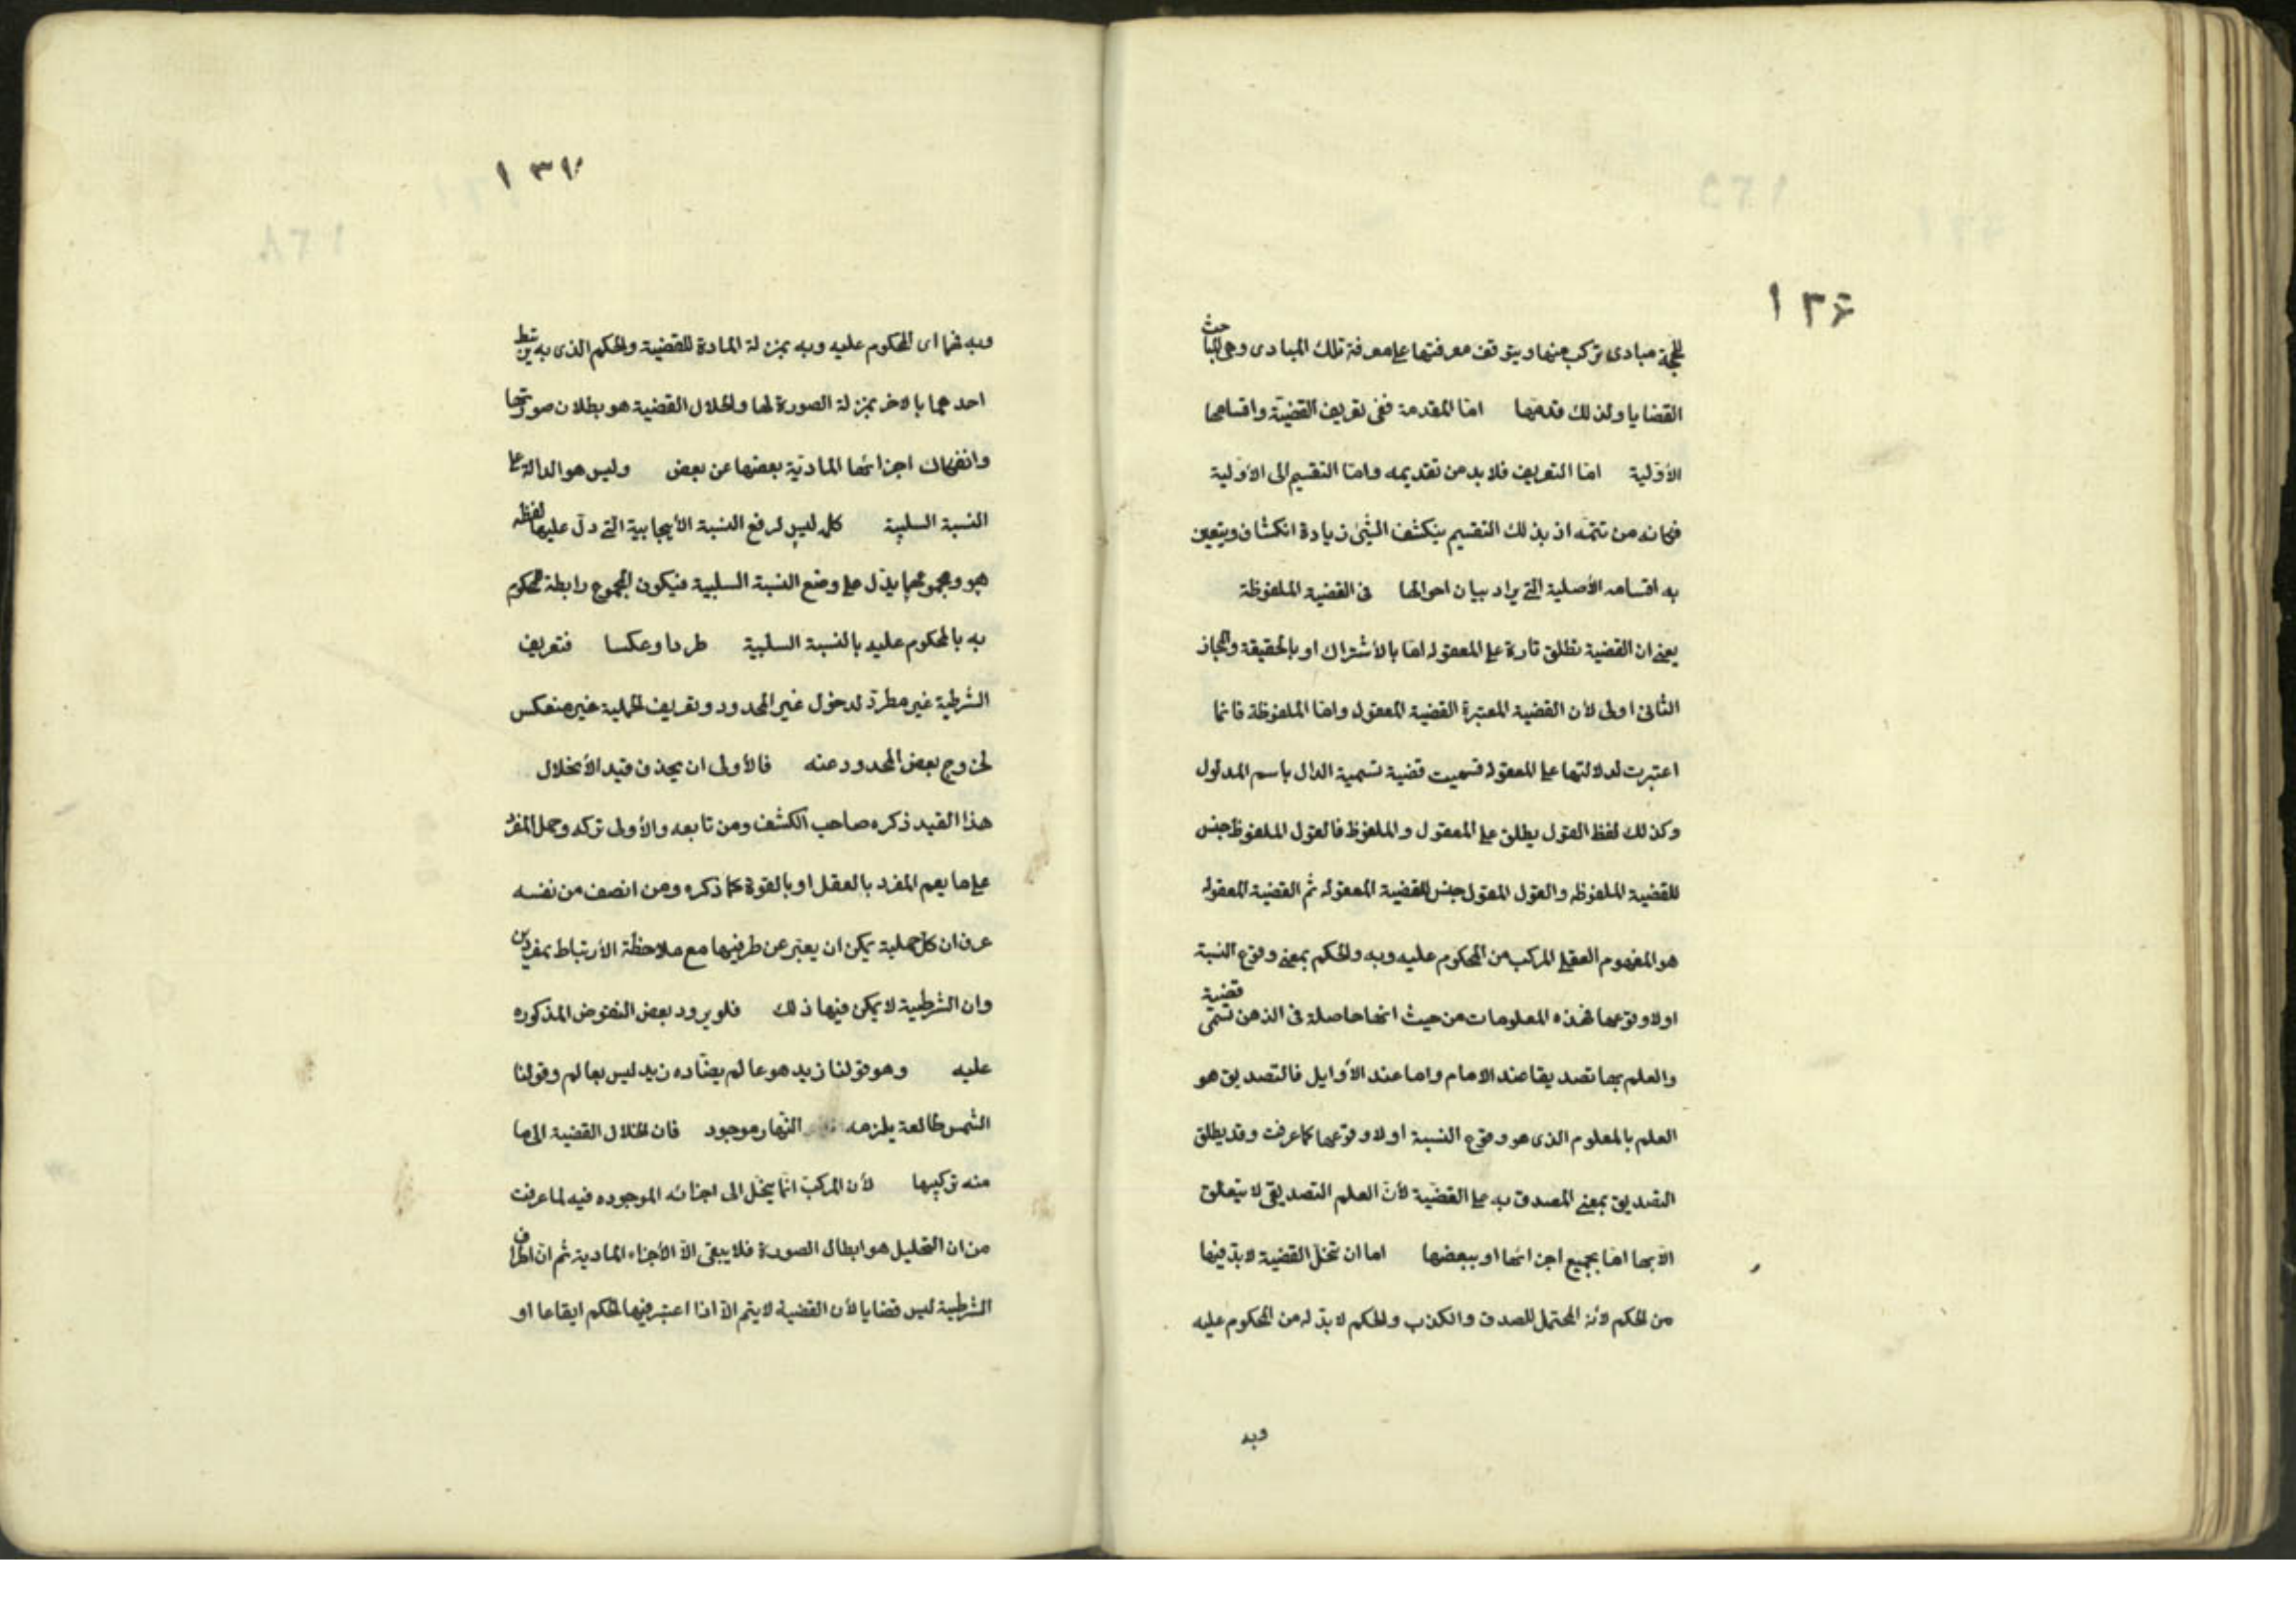 ١٣۶
للحجة مبادى تركب منها ويتوقف معرفتها على معرفة تلك المبادى وهى المباحث
القضايا ولذلك قدمها اما المقدمة ففى تعريف القضية واقسامها
الأوّلية امّا التعريف فلا بد من تقديمه وامّا التقسيم الى الاوّلية
فكانه من تتمّه اذ بذلك التقسيم ينكشف الشيئ زيادة انكشاف ويتعين
به اقسامه الأصلية التى يراد بيان احوالها فى القضية الملفوظة
يعنى ان القضية تطلق تارة على المعقوله امّا بالأشتراك او بالحقيقة والمجاز
الثانى اولى لأن القضية المعتبرة القضية المعقوله وامّا الملفوظة فانما
اعتبرت لدلالتها على المعقوله فسميت قضية تسمية الدال باسم المدلول
وكذلك لفظ القول يطلق على المعقول والملفوظ فالقول الملفوظ جنس
للقضية الملفوظه والقول المعقول جنس للقضية المعقوله ثم القضية المعقوله
هو المفهوم العقلى المركب من المحكوم عليه وبه والحكم بمعنى وقوع النسبة
اولا وقوعها فهذه المعلومات من حيث انها حاصلة فى الذهن تسمّى قضية
والعلم بها تصديقا عند الامام واما عند الأوايل فالتصديق هو
العلم بالمعلوم الذى هو وقوع النسبة اولا وقوعها كما عرفت وقد يطلق
التصديق بمعنى المصدق به على القضيّة لأنّ العلم التصديقى لا يتعلق
الّا بها امّا بجميع اجزائها او ببعضها اما ان تنحلّ القضية لابدّ فيها
من الحكم لأنه المحتمل للصدق والكذب والحكم لابدّ له من المحكوم عليه
وبه
١٣٧
وبه فهما اى المحكوم عليه وبه بمنزلة المادة للقضية والحكم الذى به يرتبط
احدهما بالاخر بمنزلة الصورة لها وانحلال القضية هو بطلان صورتها
وانفكاك اجزائها الماديّة بعضها عن بعض وليس هو الدالة على
النسبة السلبية كلمه ليس لرفع النسبة الأيجابية التى دلّ عليها لفظه
هو ومجموعهما يدّل على وضع النسبة السلبية فيكون المجموع رابطة المحكوم
به بالمحكوم عليه بالنسبة السلبية طردا وعكسا فتعريف
الشرطية غير مطردّ لدخول غير المحدود وتعريف الحملية غير منعكس
لخروج بعض المحدود عنه فالأولى ان يحذف قيد الأنحلال
هذا القيد ذكره صاحب الكشف ومن تابعه والأولى تركه وحمل المفرد
على ما يعم المفرد بالفعل او بالقوة كما ذكره ومن انصف من نفسه
عرف ان كل حملية يمكن ان يعبّر عن طرفيها مع ملاحظة الأرتباط بمفردين
وان الشرطية لا يمكن فيها ذلك فلو يرود بعض النقوض المذكوره
عليه وهو قولنا زيد هو عالم يضادّه زيد ليس بعالم وقولنا
الشمس طالعة يلزمه النّهار موجود فان انحلال القضية الى ما
منه تركيبها لأن المركّب انّما ينحّل الى اجزائه الموجوده فيه لما عرفت
من ان التحليل هو ابطال الصورة فلا يبقى الّا الأجزاء المادية ثم انّ اطراف
الشرطية ليس قضايا لأن القضية لا يتم الّا اذا اعتبر فيها الحكم ايقاعا او